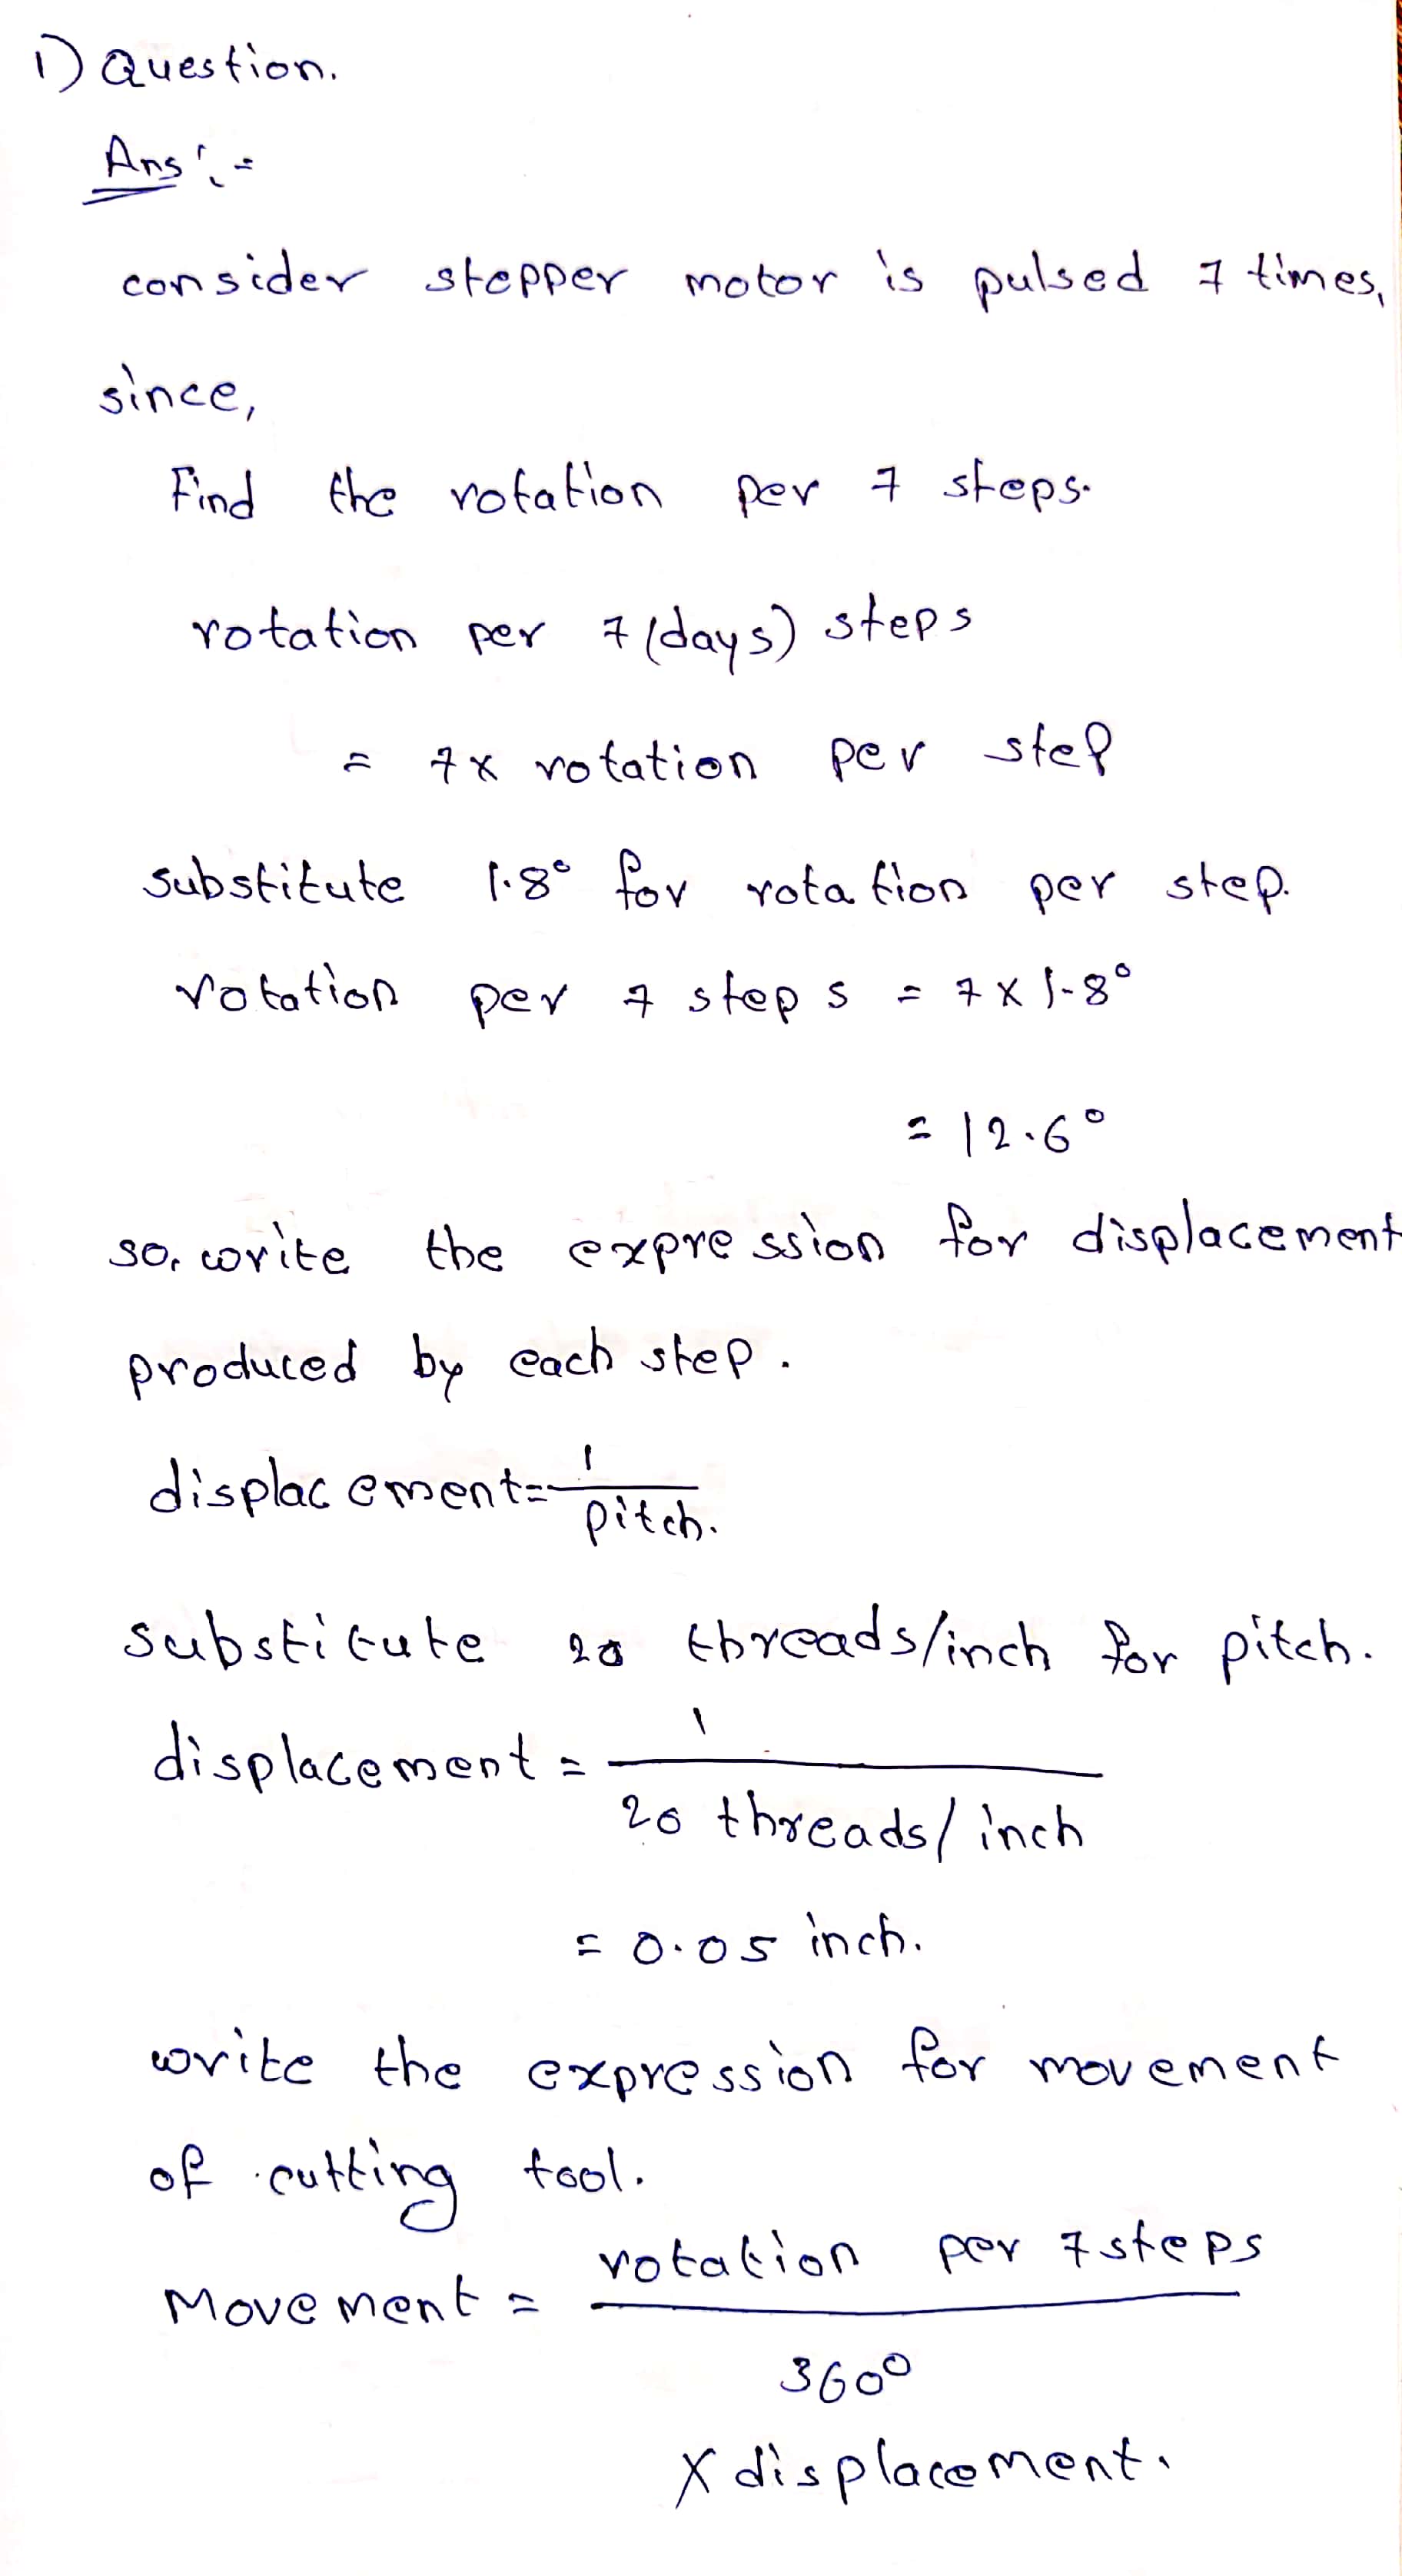 1) Question.
Ans :-
consider stepper motor is pulsed 7 times,
since,
Find the rotation per 7 steps.
rotation per 7 (days) steps
= 7x rotation per step
substitute 1.8° for rotation per step.
rotation per 7 steps = 7 x 1.8°
= 12.6°
so, write the expression for displacement
produced by each step.
displacement = 1
pitch.
substitute 20 threads/inch for pitch.
displacement = 1
20 threads/inch
= 0.05 inch.
write the expression for movement
of cutting tool.
Movement = rotation per 7 steps
360°
x displacement.